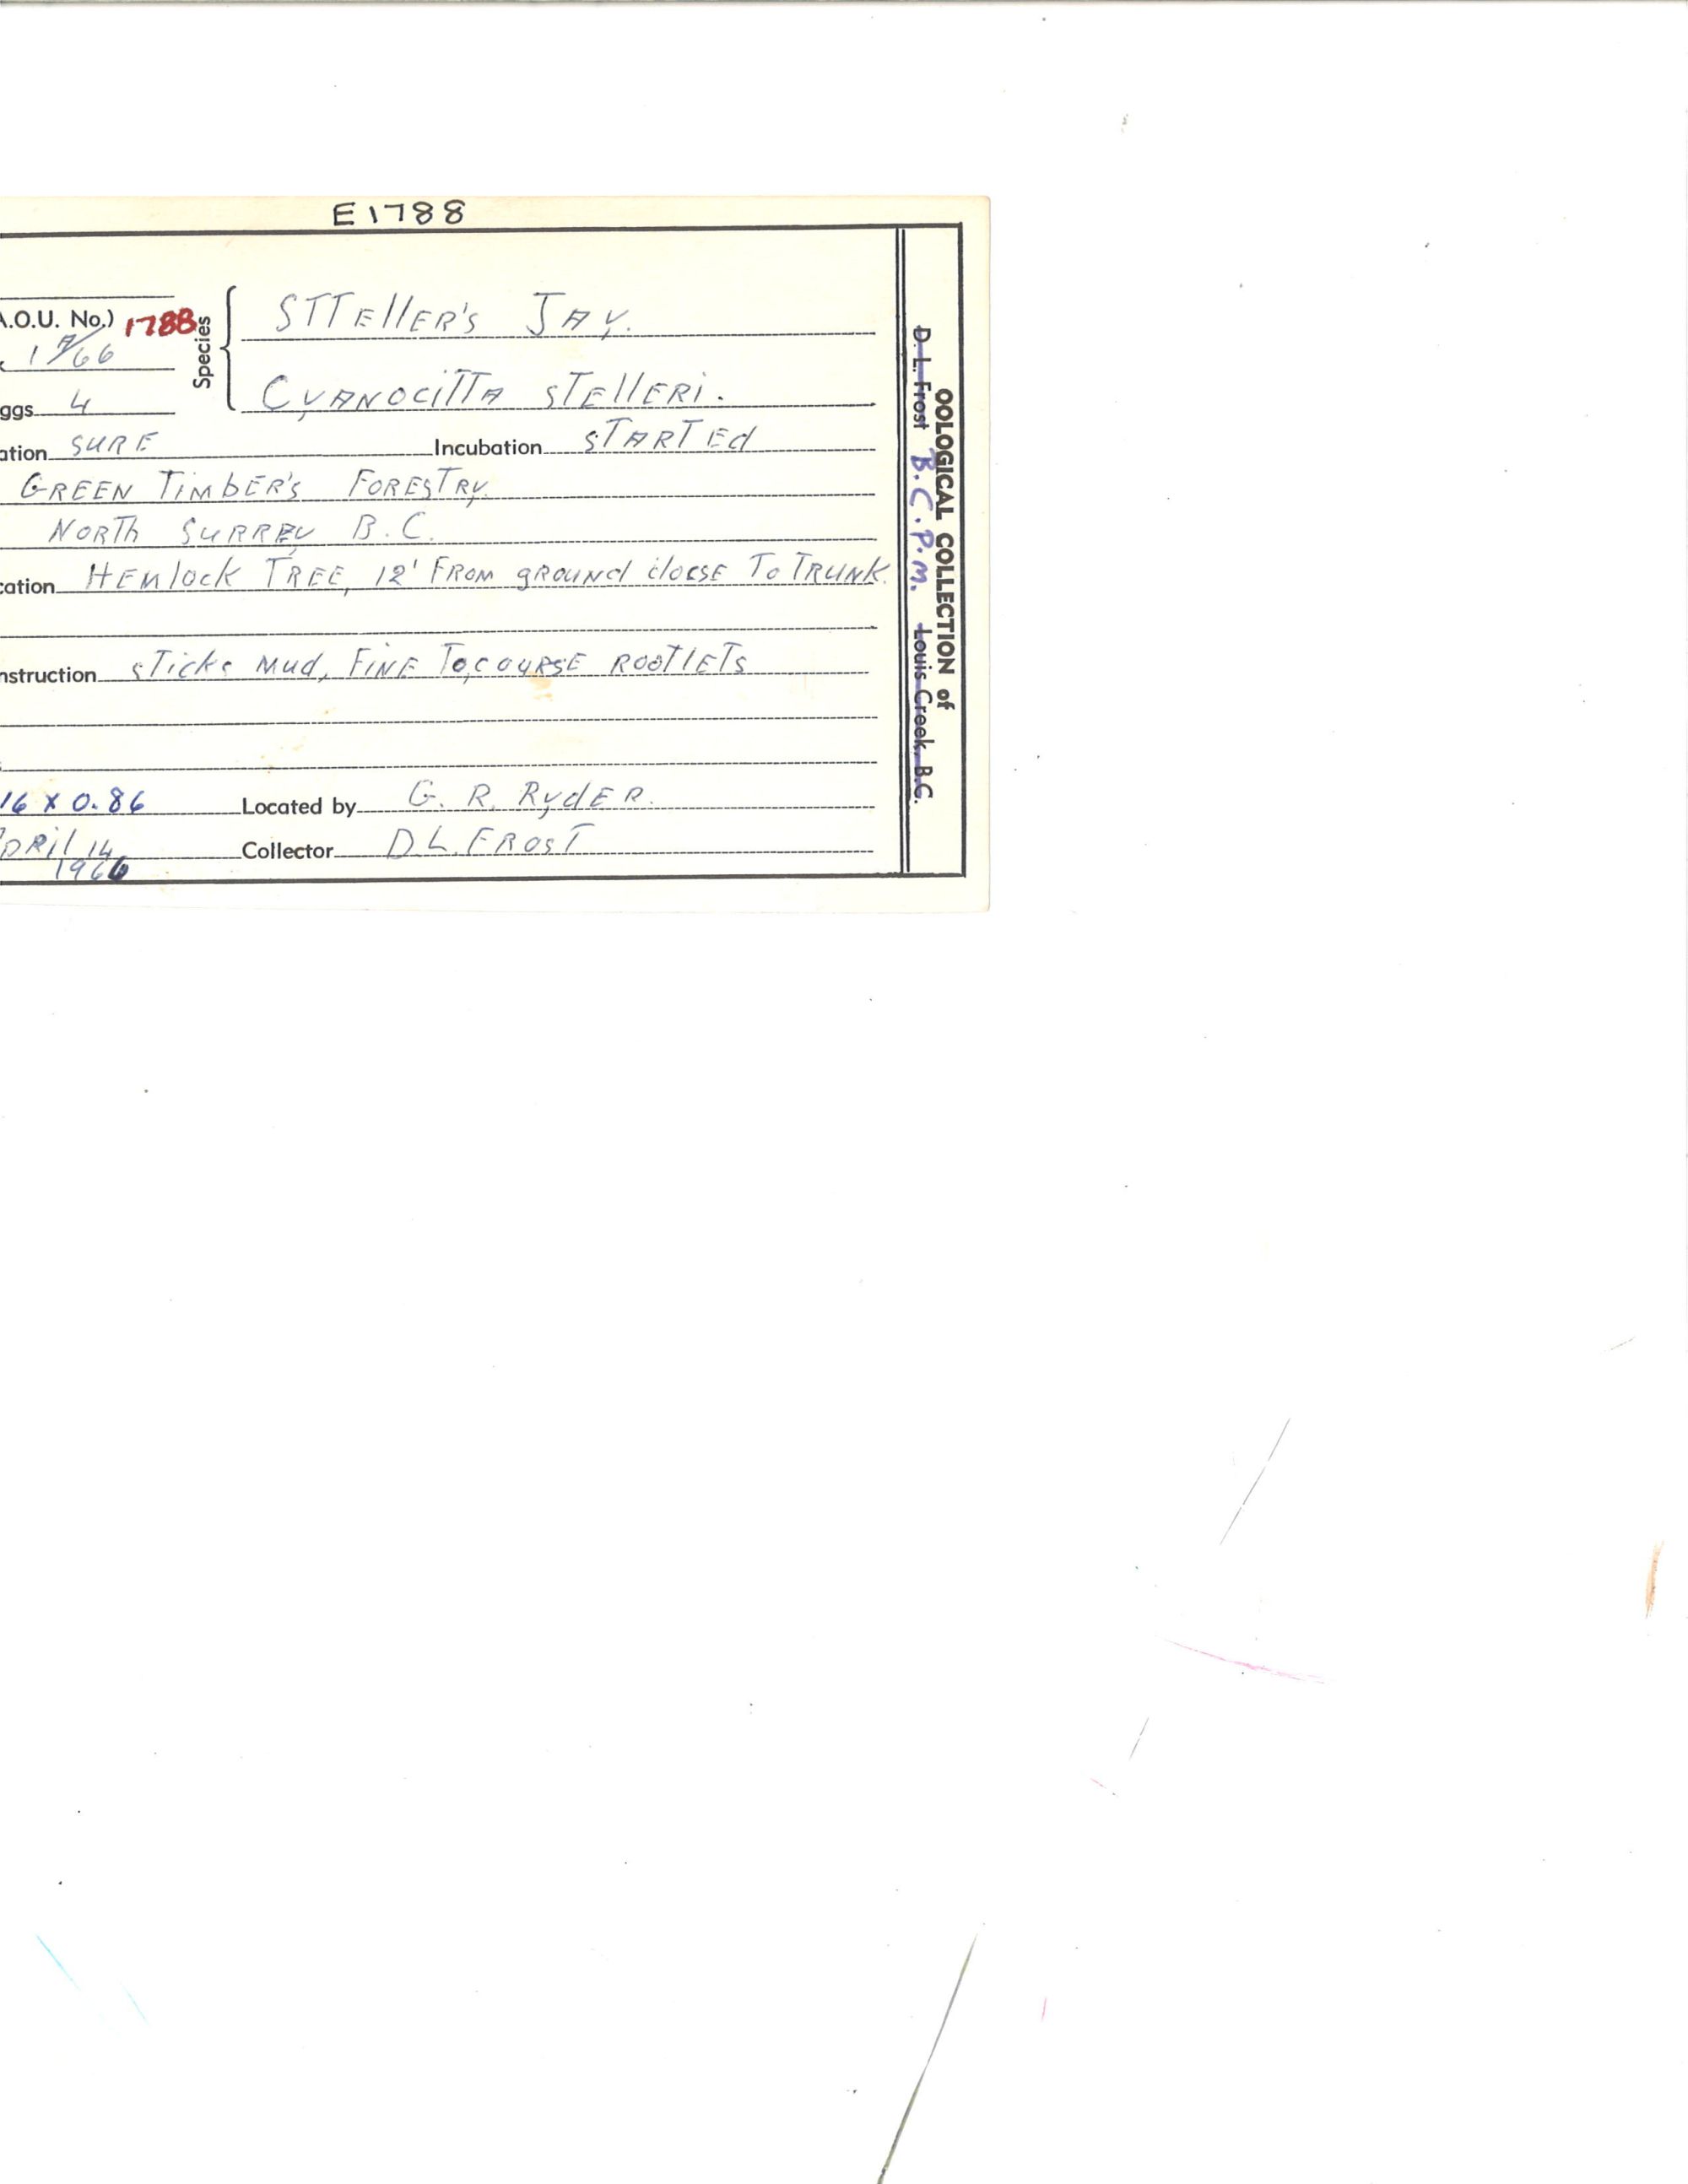 E1788
A.O.U. No.) 1788
Species
STTEllER'S JAY.
1 A/66
CYANOCITTA STEllERI.
ggs 4
ation SURE Incubation STARTEd
GREEN TIMbER'S FORESTRY.
NORTh SURREY B.C.
cation HEMlock TREE, 12' FROM gROUNd clocse To TRUNK.
nstruction sTicks Mud, FINE To,coURSE ROOTlETS
16 x 0.86 Located by G. R. RydER.
PRil 14 1966 Collector D.L. FROST
OOLOGICAL COLLECTION of
D. L. Frost B.C.P.M. Louis Creek, B.C.